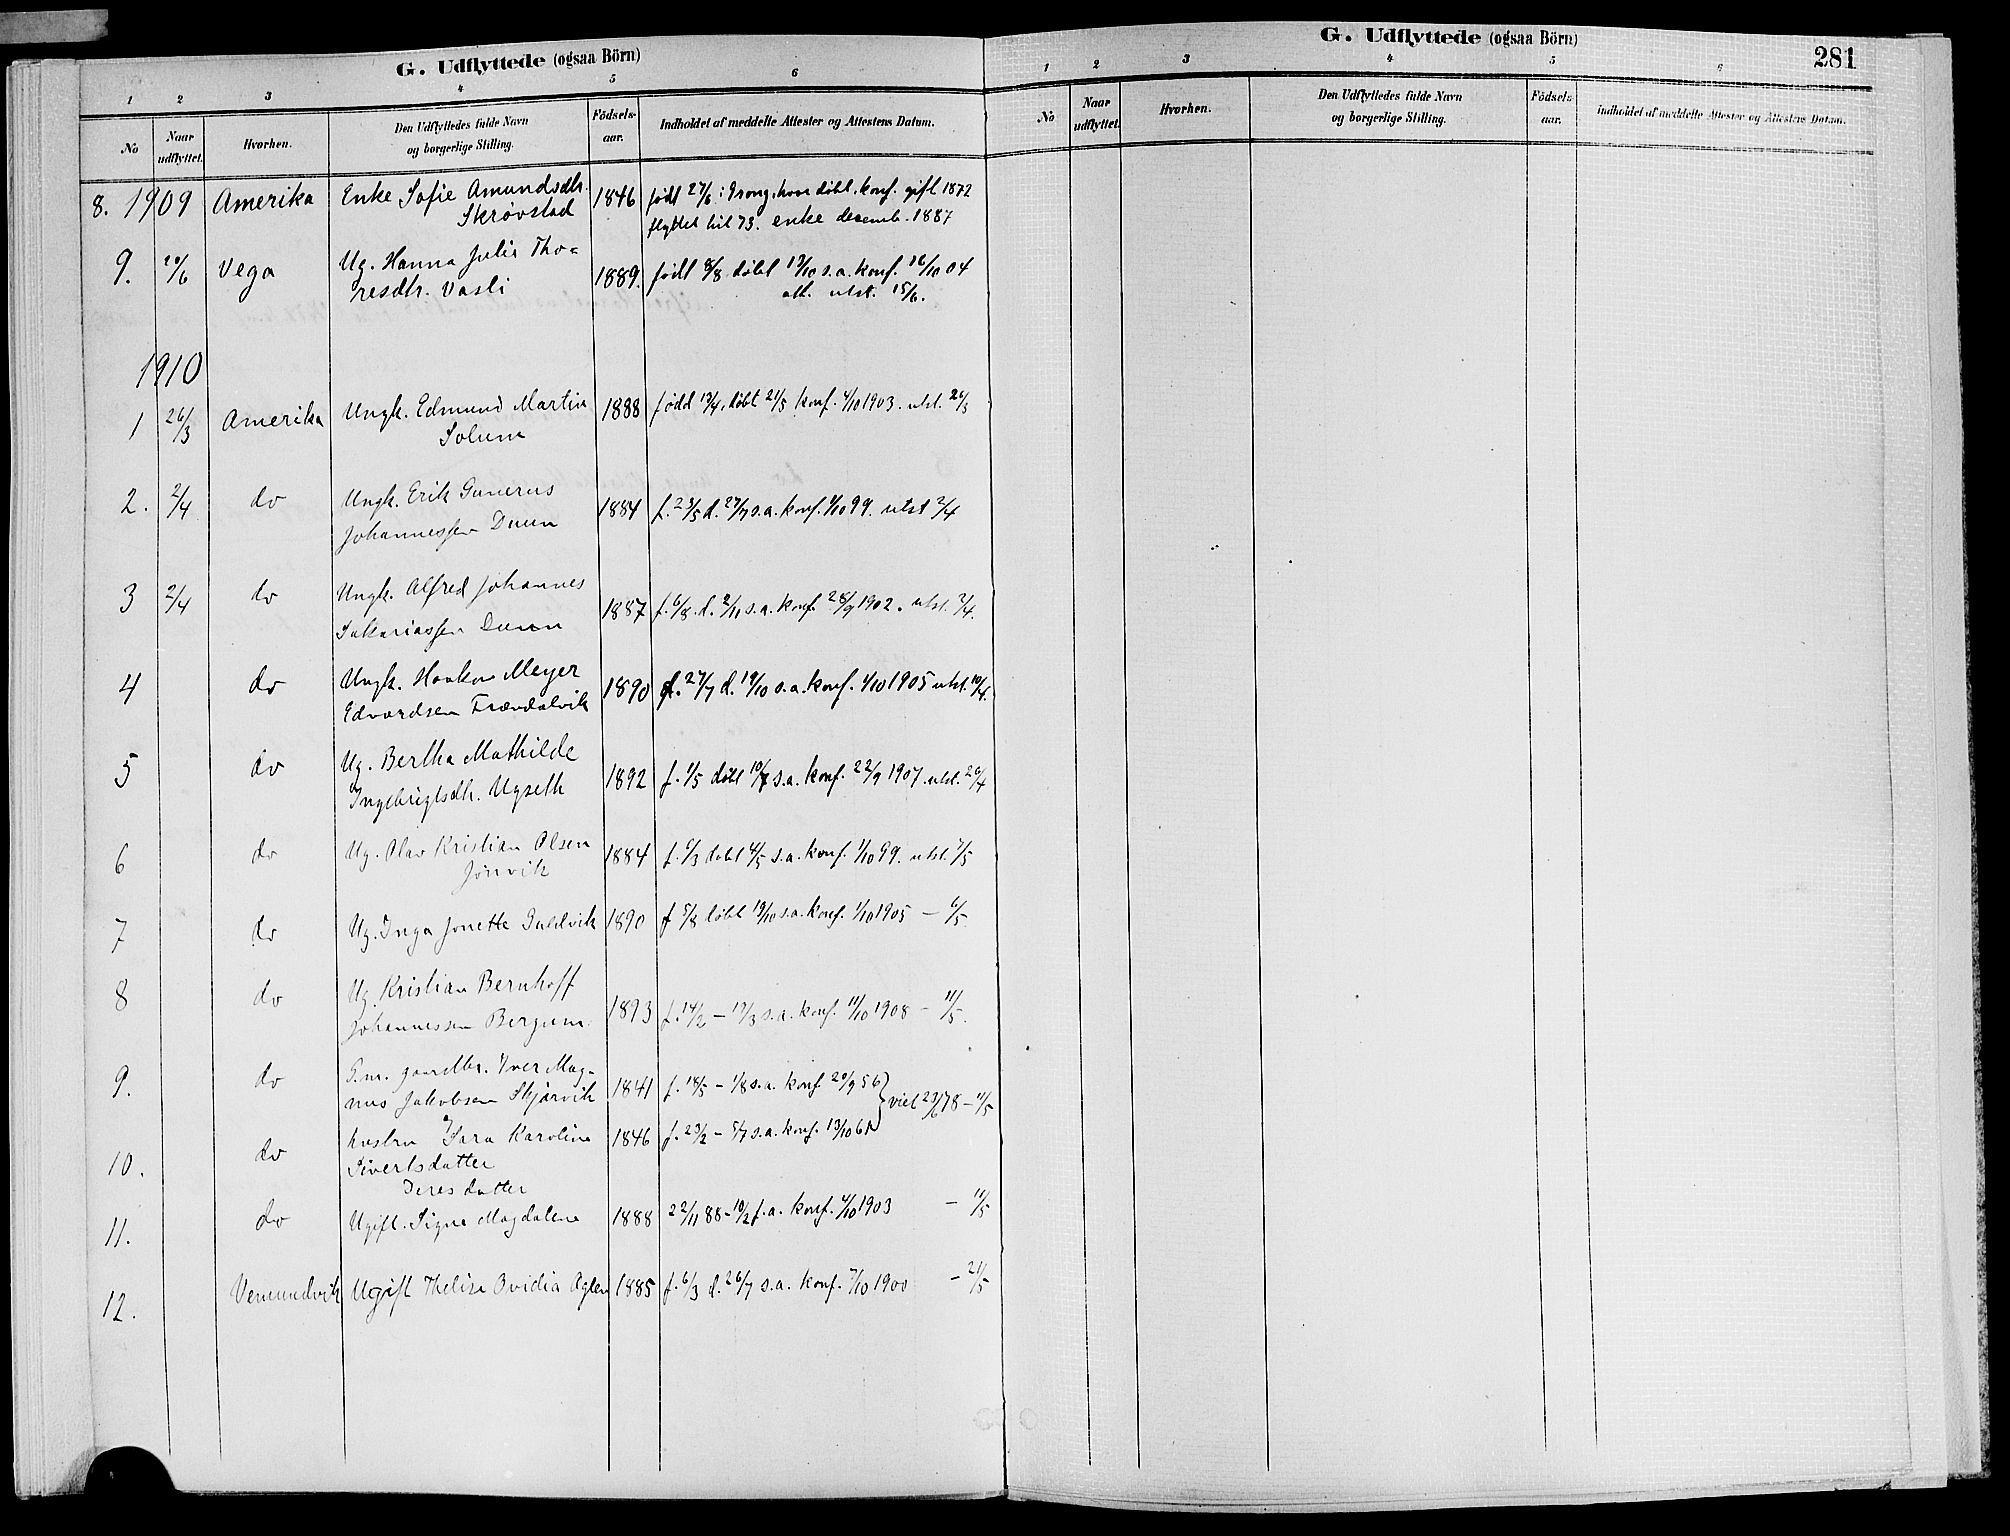 G. Udflyttede (ogsaa Börn)
1 2 3 4 5 6
No
Naar udflyttet.
Hvorhen.
Den Udflyttedes fulde Navn og borgerlige Stilling.
Födsels-aar.
Indholdet af meddelte Attester og Attestens Datum.
8. 1909 Amerika Enke Sofie Amundsdtr. 1846 født 27/6 i Grong, hvor døbt, konf. gift 1872
Skrøvstad flyttet hit 73. enke decemb. 1887
9. 20/6 Vega Ug. Hanna Julie Tho-
resdtr. Vasli 1889. født 8/8 døbt 13/10 s.a. konf. 16/10 04
att. utst. 15/6.
1910
1 26/3 Amerika Ungk. Edmund Martin 1888 født 13/4, døbt 21/5 konf. 4/10 1903. utst. 26/3
Solum
2. 2/4 do Ungk. Erik Gunerus
Johannessen Duun 1884 f. 23/5 d. 27/7 s.a. konf. 1/10 99. utst 2/4
3 2/4 do Ungk. Alfred Johannes
Sakariassen Duun 1887 f. 6/8. d. 2/11 s.a. konf. 28/9 1902. utst. 2/4.
4 do Ungk. Haakon Meyer
Edvardsen Frændalvik 1890 f. 27/7 d. 19/10 s.a. konf. 1/10 1905 utst. 10/4.
5 do Ug. Bertha Mathilde
Ingebrigtsdtr. Ugseth 1892 f. 1/5 døbt 10/7 s.a. konf. 22/9 1907. utst. 20/4
6 do Ug. Olav Kristian Olsen 1884 f. 6/3 døbt 4/5 s.a. konf. 1/10 99. utst. 7/5
Jønvik
7 do Ug. Inga Jonette Guldvik 1890 f 5/8 døbt 19/10 s.a. konf. 1/10 1905 — 6/5
8 do Ug. Kristian Bernhoff
Johannessen Bergum. 1893 f. 14/2 — 19/3 s.a. konf. 11/10 1908 — 11/5.
9. do G.m. gaardbr. Iver Mag-
nus Jakobsen Skjærvik 1841 f. 18/5 — 1/8 s.a. konf 20/9 56 } viet 23/6 78 — 11/5
10. do hustru Sara Karoline 1846 f. 23/2 — 5/7 s.a. konf. 13/10 61
Sivertsdatter
Deres datter
11. do Ugift. Signe Magdalene 1888 22/11 88 — 10/2 f.a. konf. 4/10 1903 — 11/5
12. Vemundvik Ugift Thelise Ovidia Aglen 1885 f. 6/3 d. 26/7 s.a. konf. 7/10 1900 — 21/5
G. Udflyttede (ogsaa Börn)
281
1 2 3 4 5 6
No
Naar udflyttet.
Hvorhen.
Den Udflyttedes fulde Navn og borgerlige Stilling.
Födsels-aar.
Indholdet af meddelte Attester og Attestens Datum.